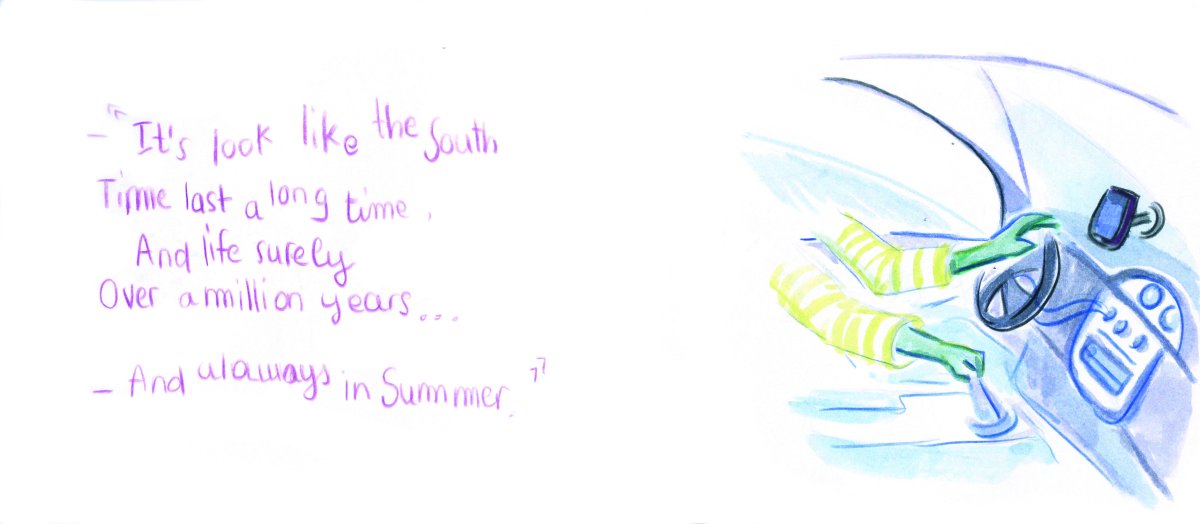 - "It's look like the South
Time last a long time,
And life surely
Over a million years...
- And alaways in Summer."